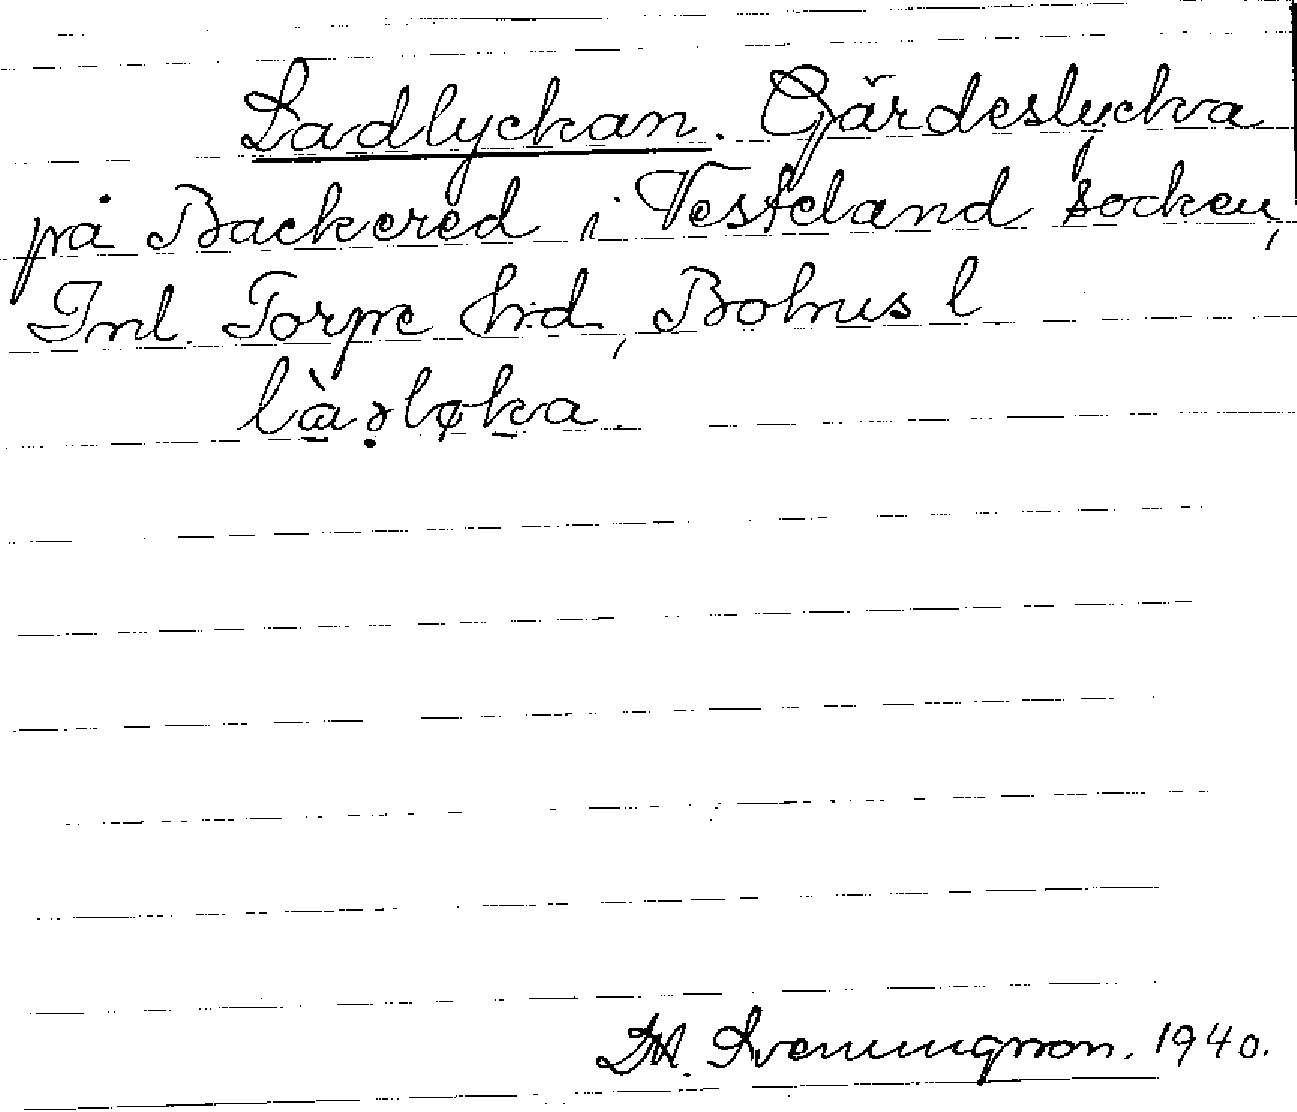 Ladlyckan. Gärdeslycka
på Backered i Vesteland socken,
Inl. Torpe hrd, Bohus l
làələka.
Svenningsson. 1940.